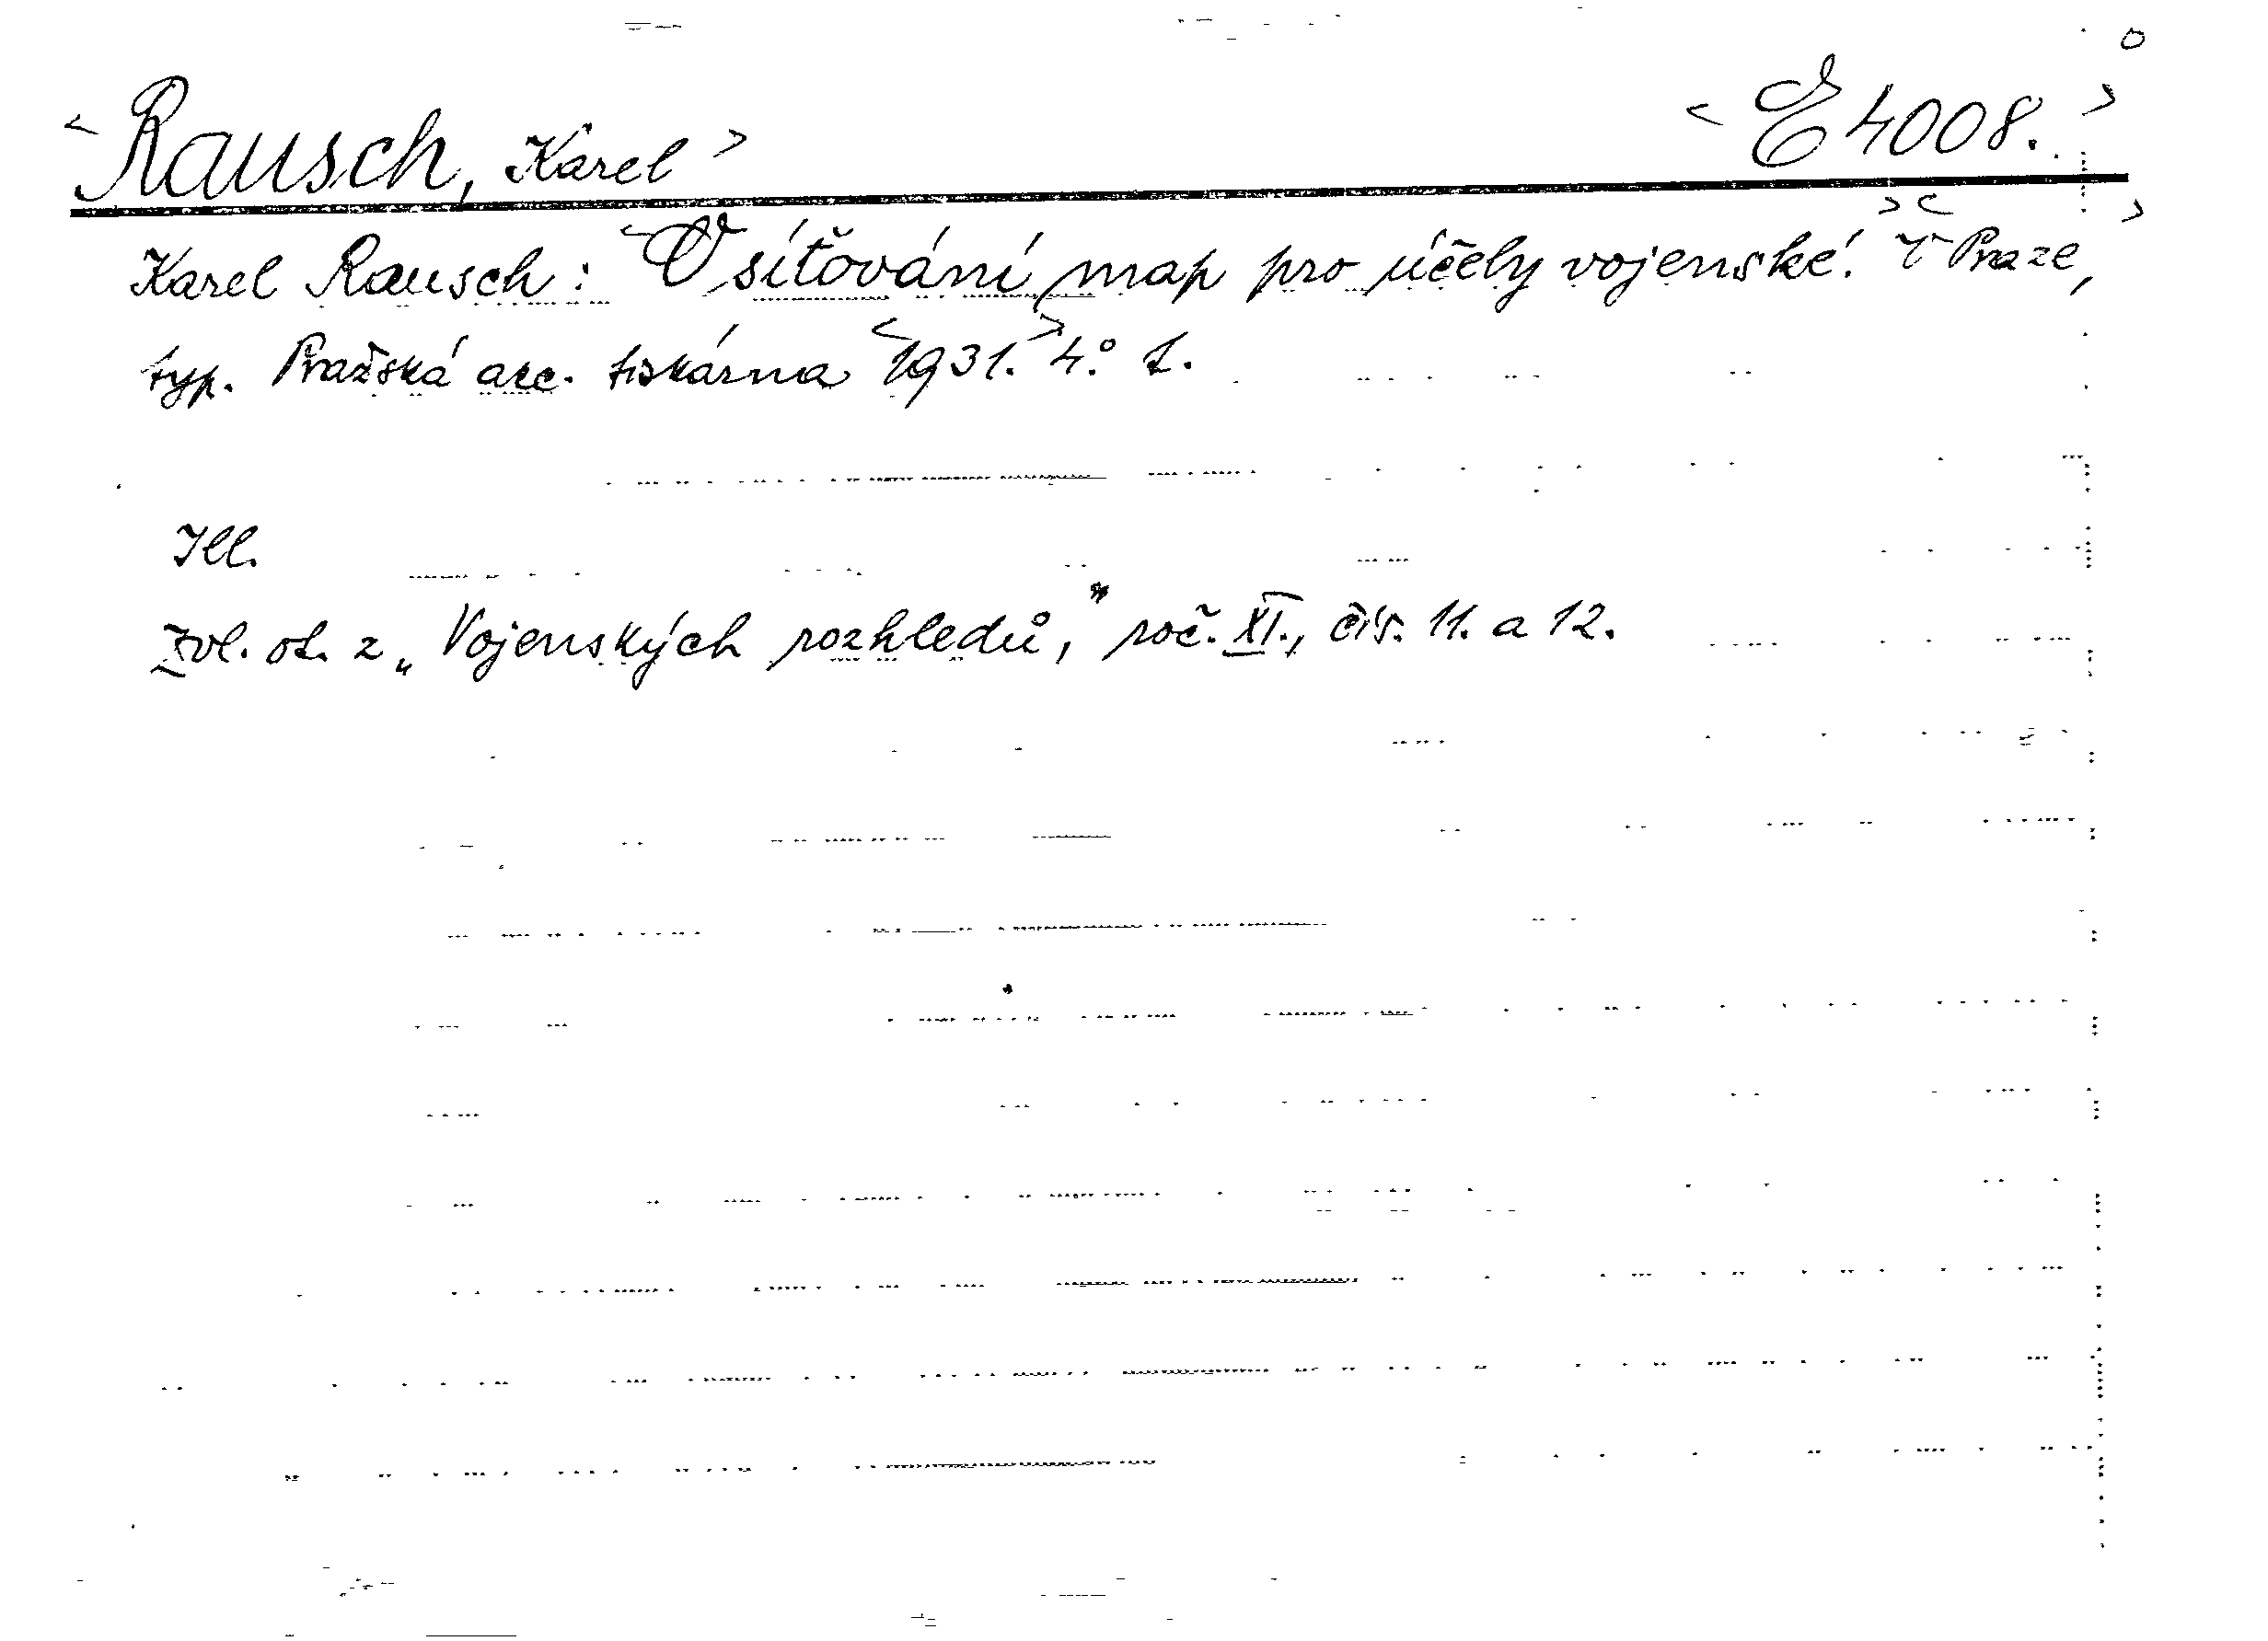 <Rausch, Karel> <E 4008.>
Karel Rausch: <O síťování map pro účely vojenské.> <V Praze,>
typ. Pražská akc. tiskárna <1931.> 4.° L.
Ill.
Zvl. ot. z „Vojenských rozhledů," roč. XI., čís. 11. a 12.